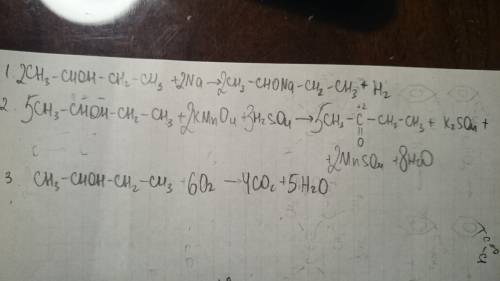 1. 2CH₃-CHOH-CH₂-CH₃ +2Na→2CH₃-CHONa-CH₂-CH₃ + H₂
2. 5CH₃-CHOH-CH₂-CH₃+2KMnO₄+3H₂SO₄→5CH₃-C-CH₂-CH₃ + K₂SO₄ +
+2
||
O
+2MnSO₄ +8H₂O
3. CH₃-CHOH-CH₂-CH₃ + 6O₂ → 4CO₂+5H₂O